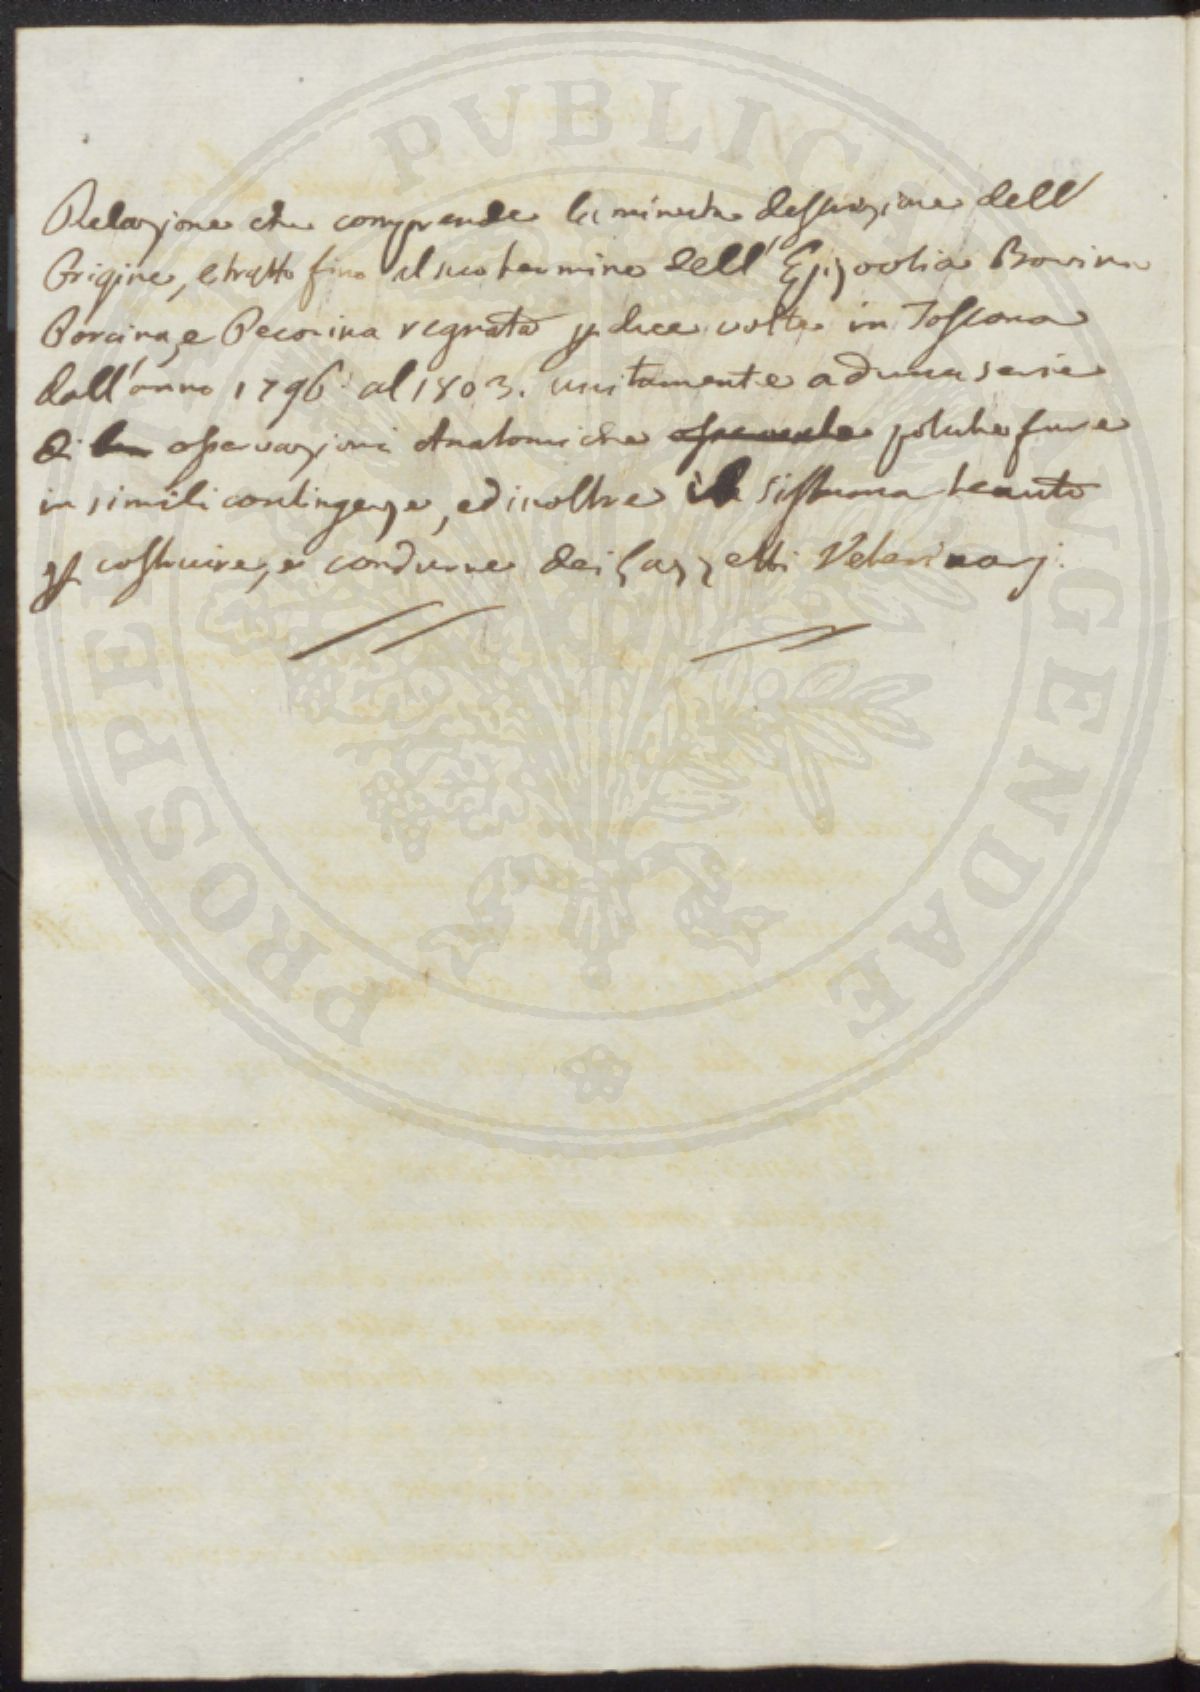 Relazione che comprende la minuta descrizione dell'
Origine, e tratto fino al suo termine dell' Epizootia Bovina
Porcina, e Pecorina regnata p. due volte in Toscana
dall' anno 1796 al 1803. unitamente ad una serie
di osservazioni Anatomiche potute fare
in simili contingenze, ed inoltre il sistema tenuto
p. costruire, e condurre dei Lazzeretti Veterinarj.
PROSPERITATI PUBLICAE AUGENDAE